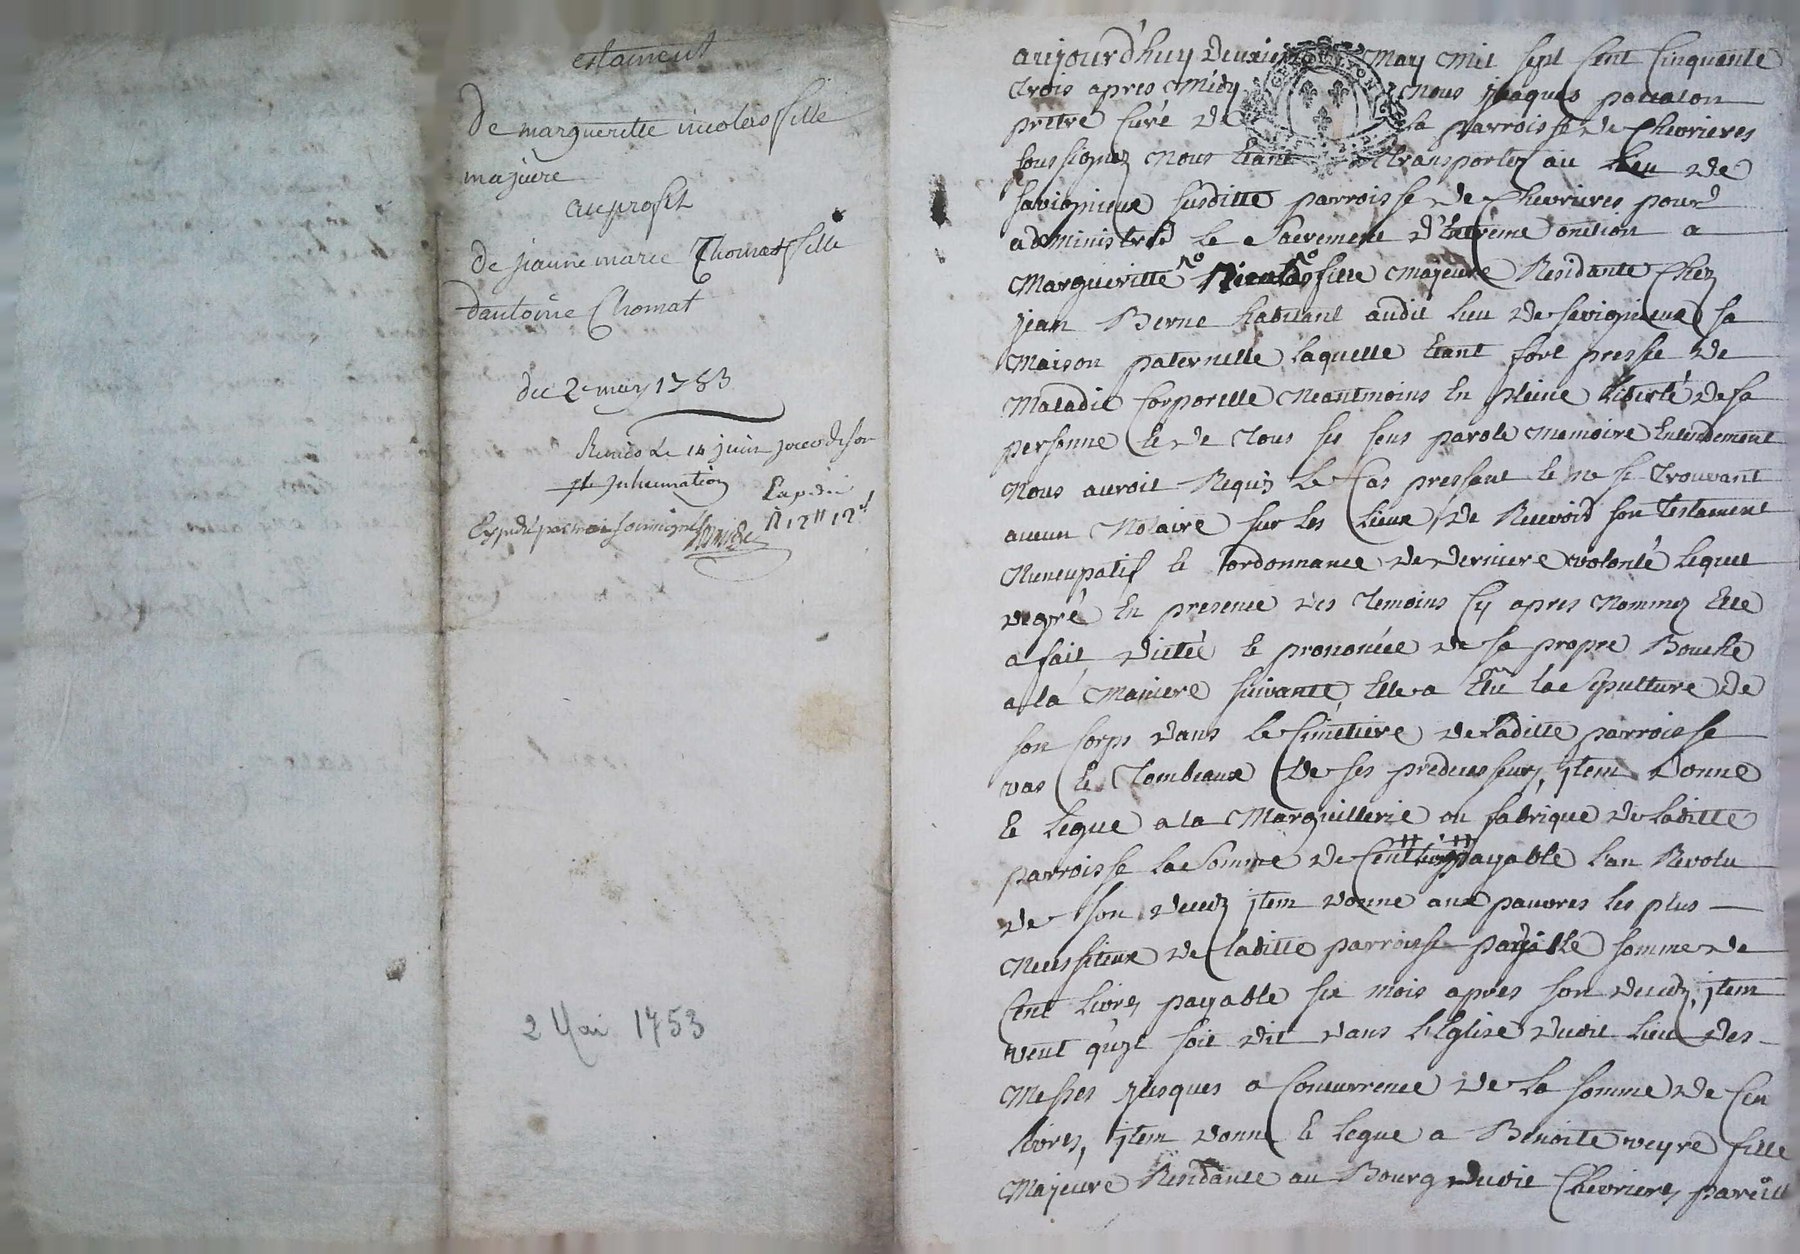 estament
de margueritte nicolas fille
majeure
au profit
de jeanne marie Thomas fille
dantoine Chomat
du 2e may 1753
Remis Le 14 juin jour de son
inhumation
Expedié par nous soussigné
R 12# 12s
2 Mai 1753
GEN DE LYON
aujourd'huy deuxieme May Mil sept Cent Cinquante
Trois apres Midy Nous jaques pocalon
prêtre Curé de la parroisse de Chevrieres
soussignez Nous étant transportez au Lieu de
savigneux susditte parroisse de Chevrieres pour
administrer le Sacrement d'Extreme onction a
Margueritte Nicolas fille Majeure Residante Chez
jean Berne habitant audit lieu de savigneux sa
Maison paternelle, laquelle étant fort pressée de
Maladie Corporelle Neantmoins En pleine liberté de sa
personne Et de Tous ses sens parole Memoire Entendement
Nous auroit Requis Le Cas pressant Et ne se Trouvant
aucun Notaire sur les Lieux, de Recevoir son Testament
Nuncupatif Et ordonnance de derniere volonté lequel
degré En presence des Temoins Cy apres Nommez Elle
a fait, dicteé Et prononcée de sa propre Bouche
a la Maniere suivante, Elle a Elû la Sepulture de
son Corps dans le Cimetiere de laditte parroisse
vas Et Tombeaux de ses predecesseurs, jtem donne
Et legue a la Marguillerie ou fabrique de laditte
parroisse la Somme de Cent livres payable l'an Revolu
de son decedz jtem donne aux pauvres les plus
Necessiteux de laditte parroisse pareille somme de
Cent livres payable six mois apres son decedz, jtem
veut qu'il soit dit dans l'Eglise dudit lieu des
Messes jusques a Concurrence de la somme de Cen
livres, jtem donne Et legue a Benoite veyre fille
Majeure Residante au Bourg dudit Chevrieres pareille